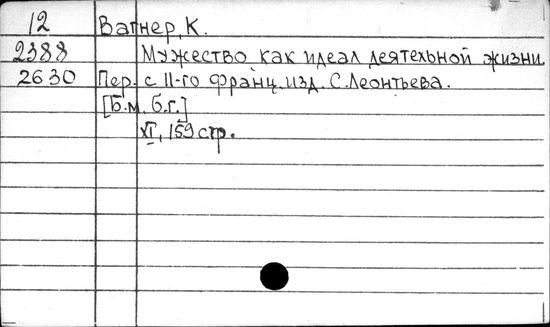 12 Вагнер, К.
2388 Мужество как идеал деятельной жизни
2630 Пер. с 11-го франц. изд. С. Леонтьева.
[Б.м. б.г.]
XI, 159 стр.